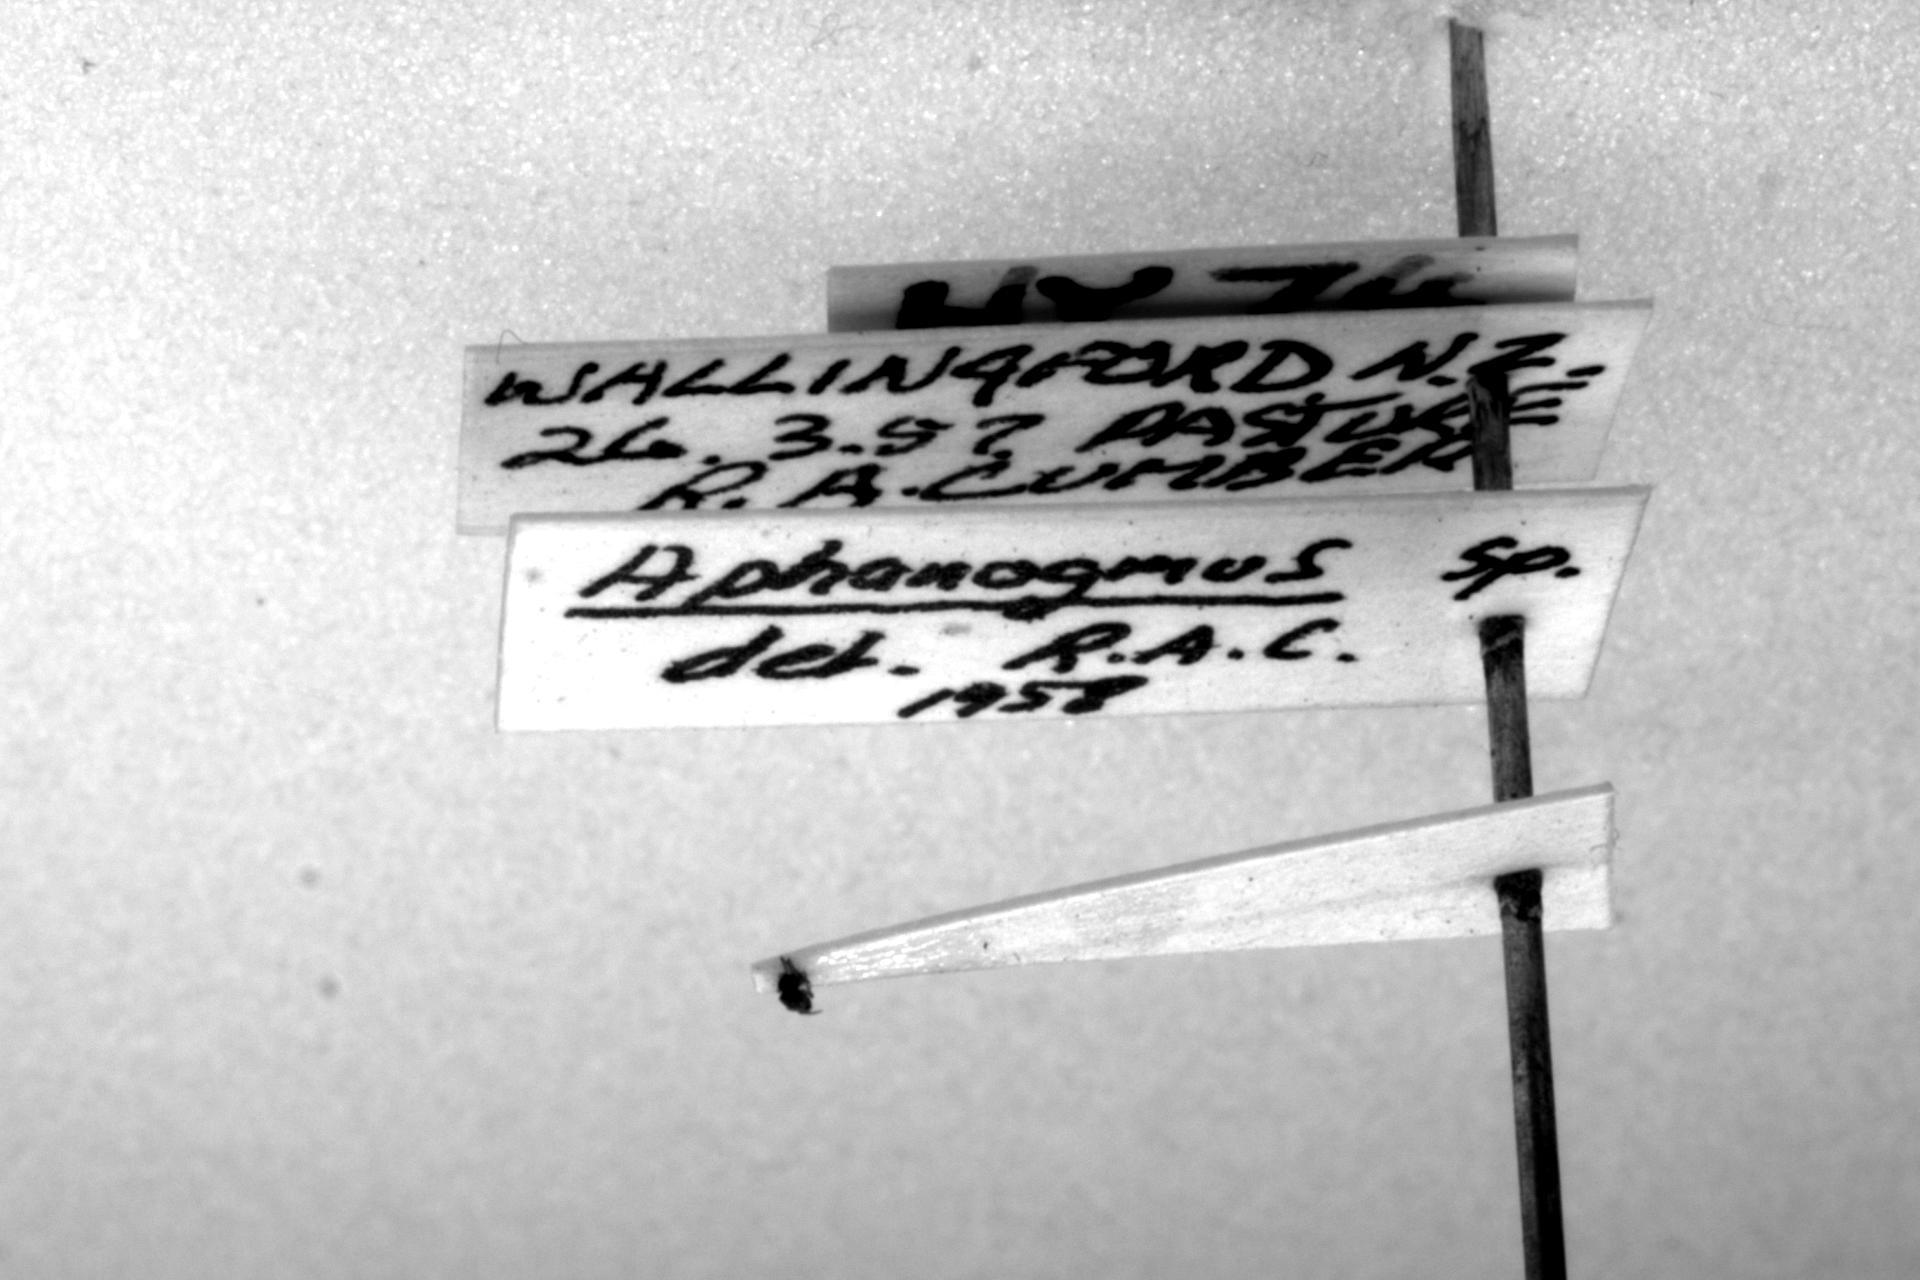 HY 76
WALLINGFORD N.Z.
26. 3.57 PASTURE
R. A. CUMBER
Aphanogmus sp.
det. R.A.C.
1958